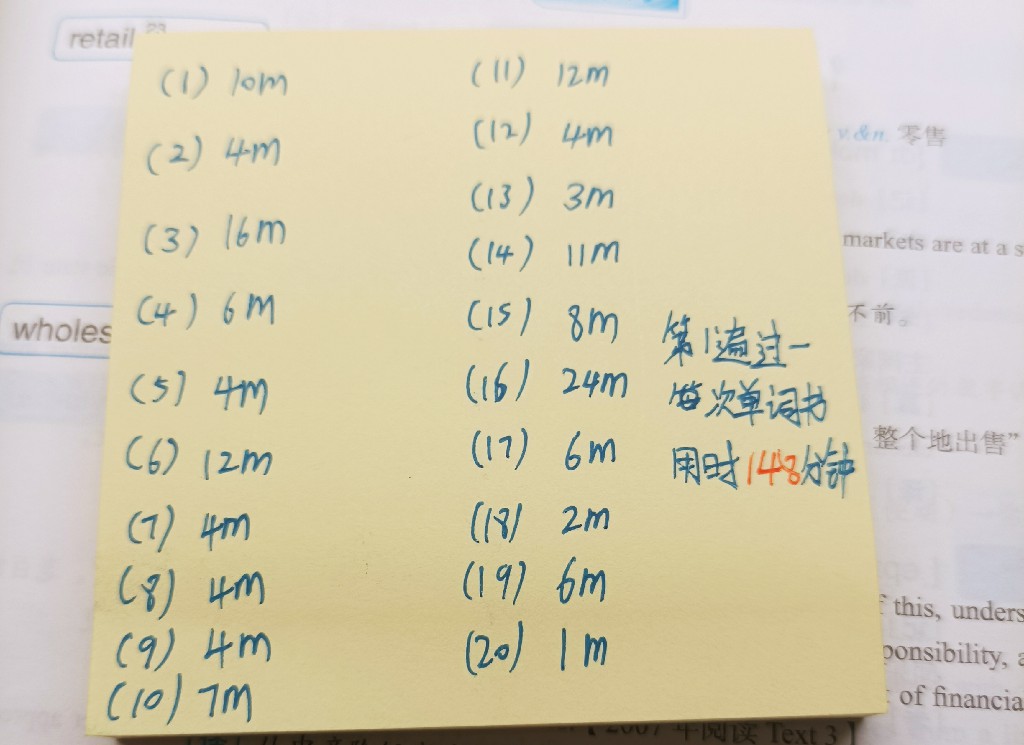 retail 23
(1) 10m
(2) 4m
(3) 16m
(4) 6m
(5) 4m
(6) 12m
(7) 4m
(8) 4m
(9) 4m
(10) 7m
(11) 12m
(12) 4m
(13) 3m
(14) 11m
(15) 8m
(16) 24m
(17) 6m
(18) 2m
(19) 6m
(20) 1m
第1遍过一
每次单词书
用时148分钟
v.&n. 零售
markets are at a s
不前。
wholes
整个地出售”
f this, unders
ponsibility, a
of financia
【2007年阅读 Text 3】